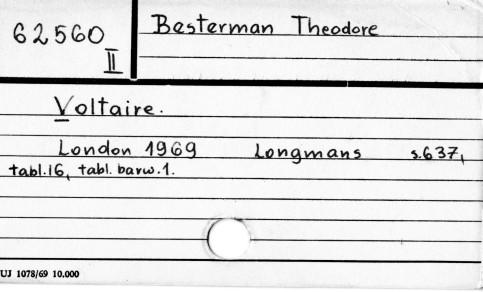 62560
II
Besterman Theodore
Voltaire.
London 1969 Longmans s.637,
tabl.16, tabl. barw.1.
UJ 1078/69 10.000